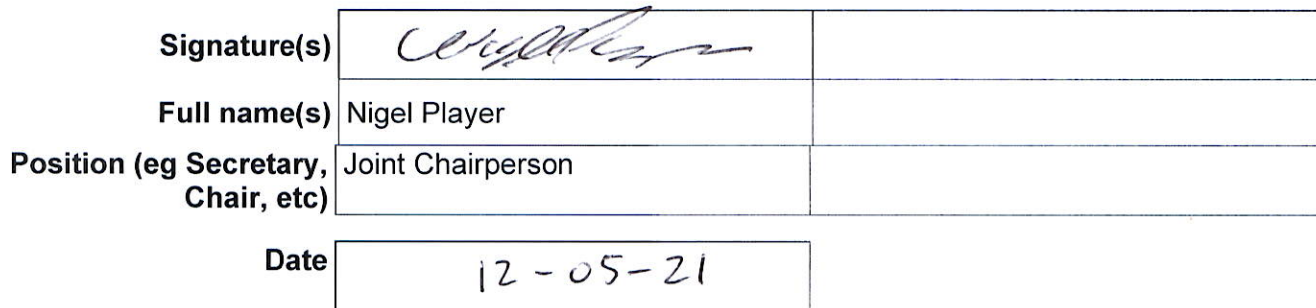 Signature(s)
Full name(s) Nigel Player
Position (eg Secretary, Joint Chairperson
Chair, etc)
Date 12-05-21